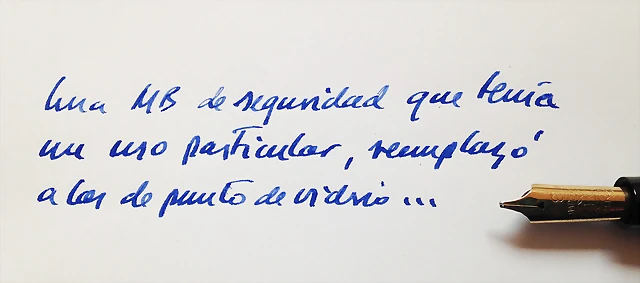 Una MB de seguridad que tenía
un uso particular, reemplazó
a las de punto de vidrio...